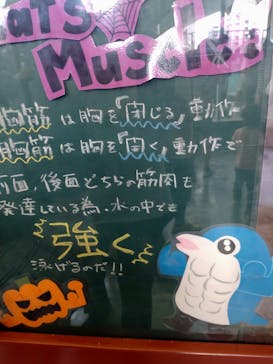 ats
Muscle!
胸筋 は胸を「閉じる」動作
胸筋 は胸を「開く」動作で
前面、後面どちらの筋肉も
発達している為、水の中でも
強く
泳げるのだ!!